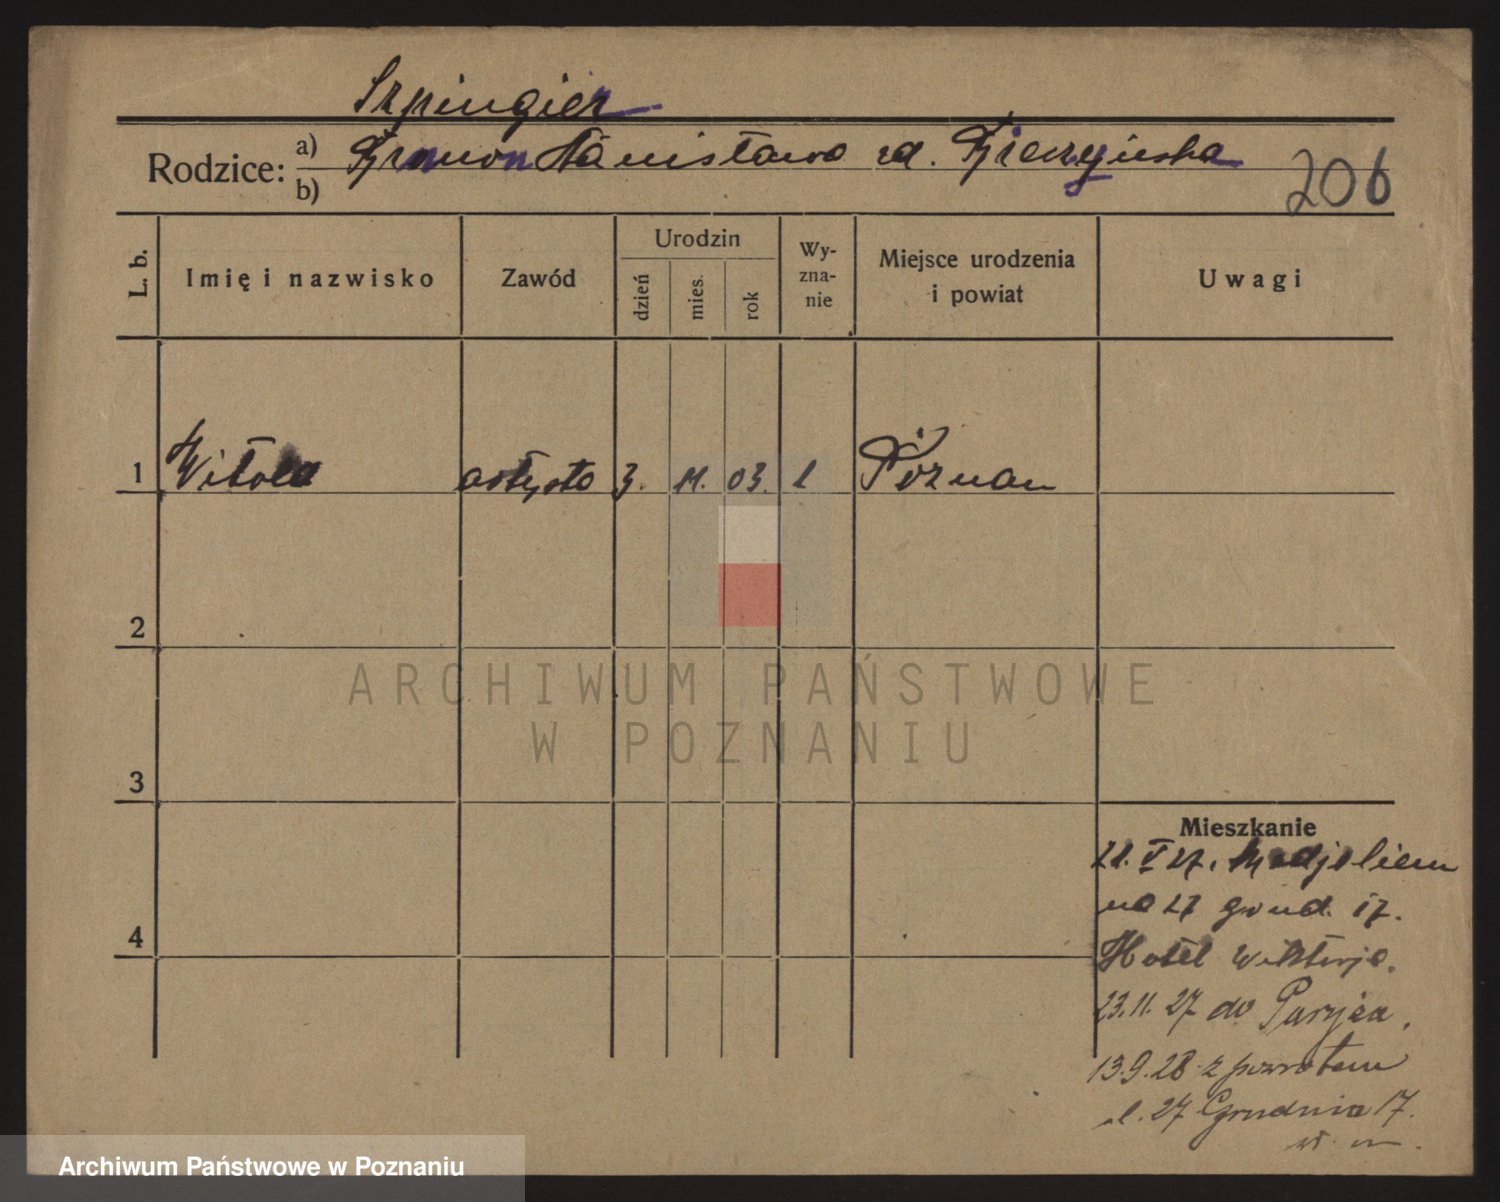 Szpingier
Rodzice: a) Stanisława
b)
206
L. b.
Imię i nazwisko
Zawód
Urodzin
dzień
mies.
rok
Wy-
zna-
nie
Miejsce urodzenia
i powiat
Uwagi
1 Witold artysta 3. 11. 03. Poznań
2
3
4
Mieszkanie
na 27 grud. 17.
Hotel Wiktorja.
23.11.27 do Paryża.
13.9.28 z powrotem
27 Grudnia 17.
ARCHIWUM PAŃSTWOWE
W POZNANIU
Archiwum Państwowe w Poznaniu